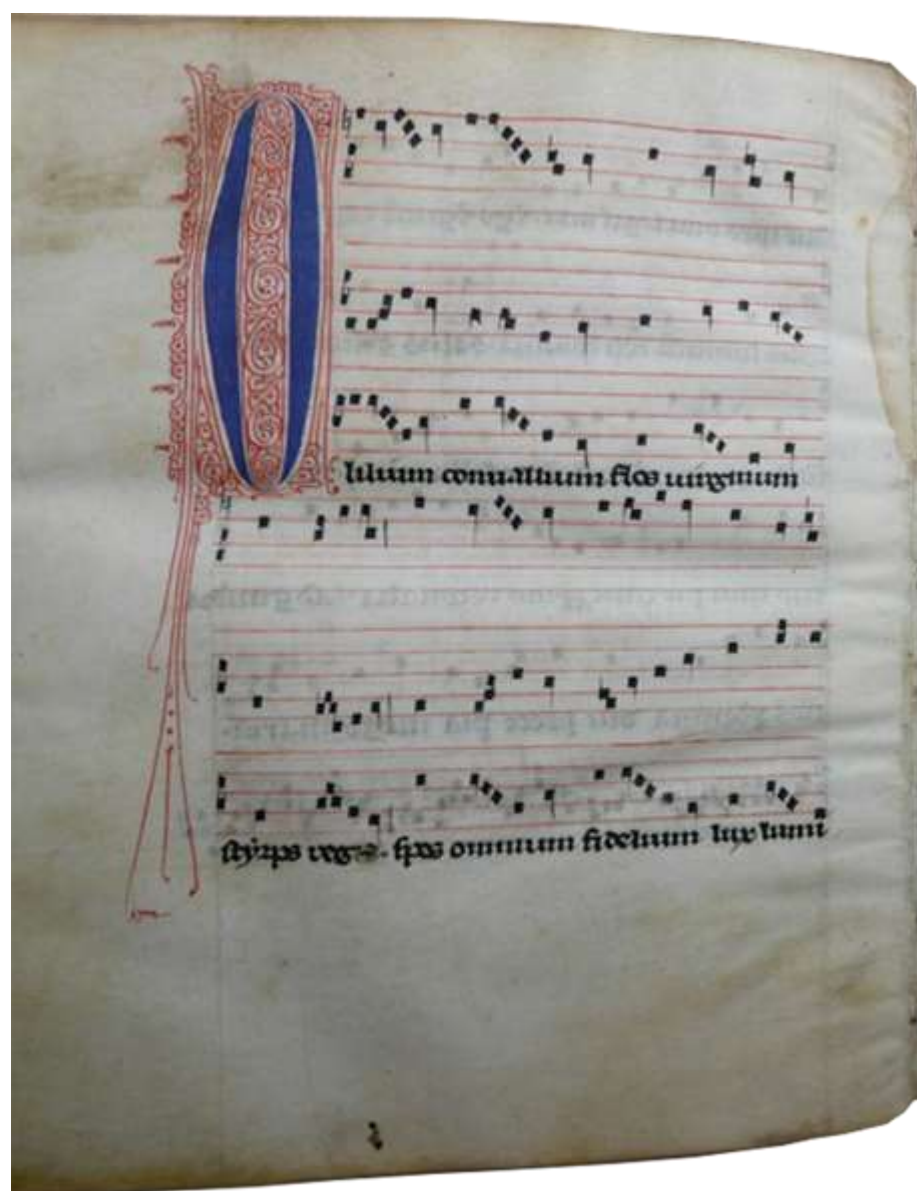 O lilium conuallium flos uirginum
styrps reg fons omnium fidelium lux lumi